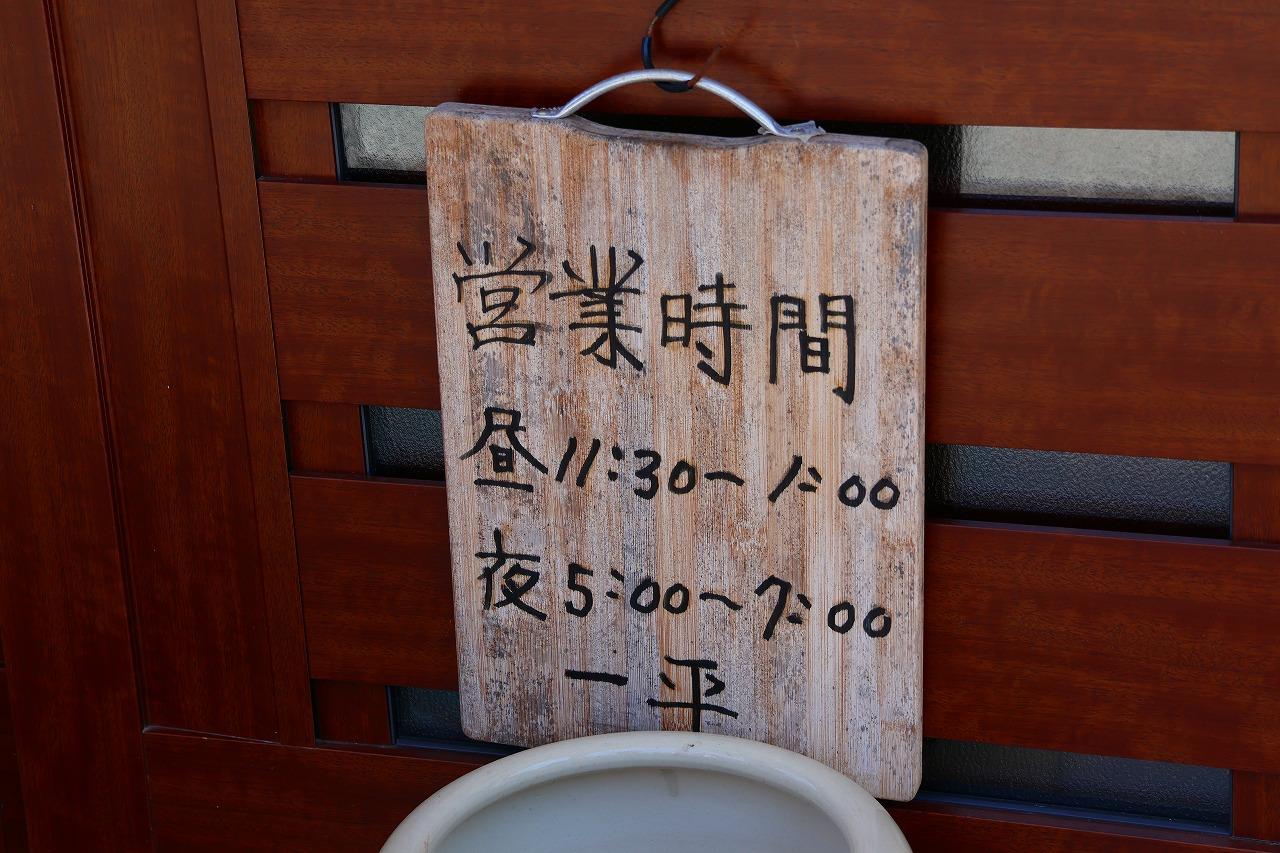 営業時間
昼11:30〜1:00
夜5:00〜7:00
一平